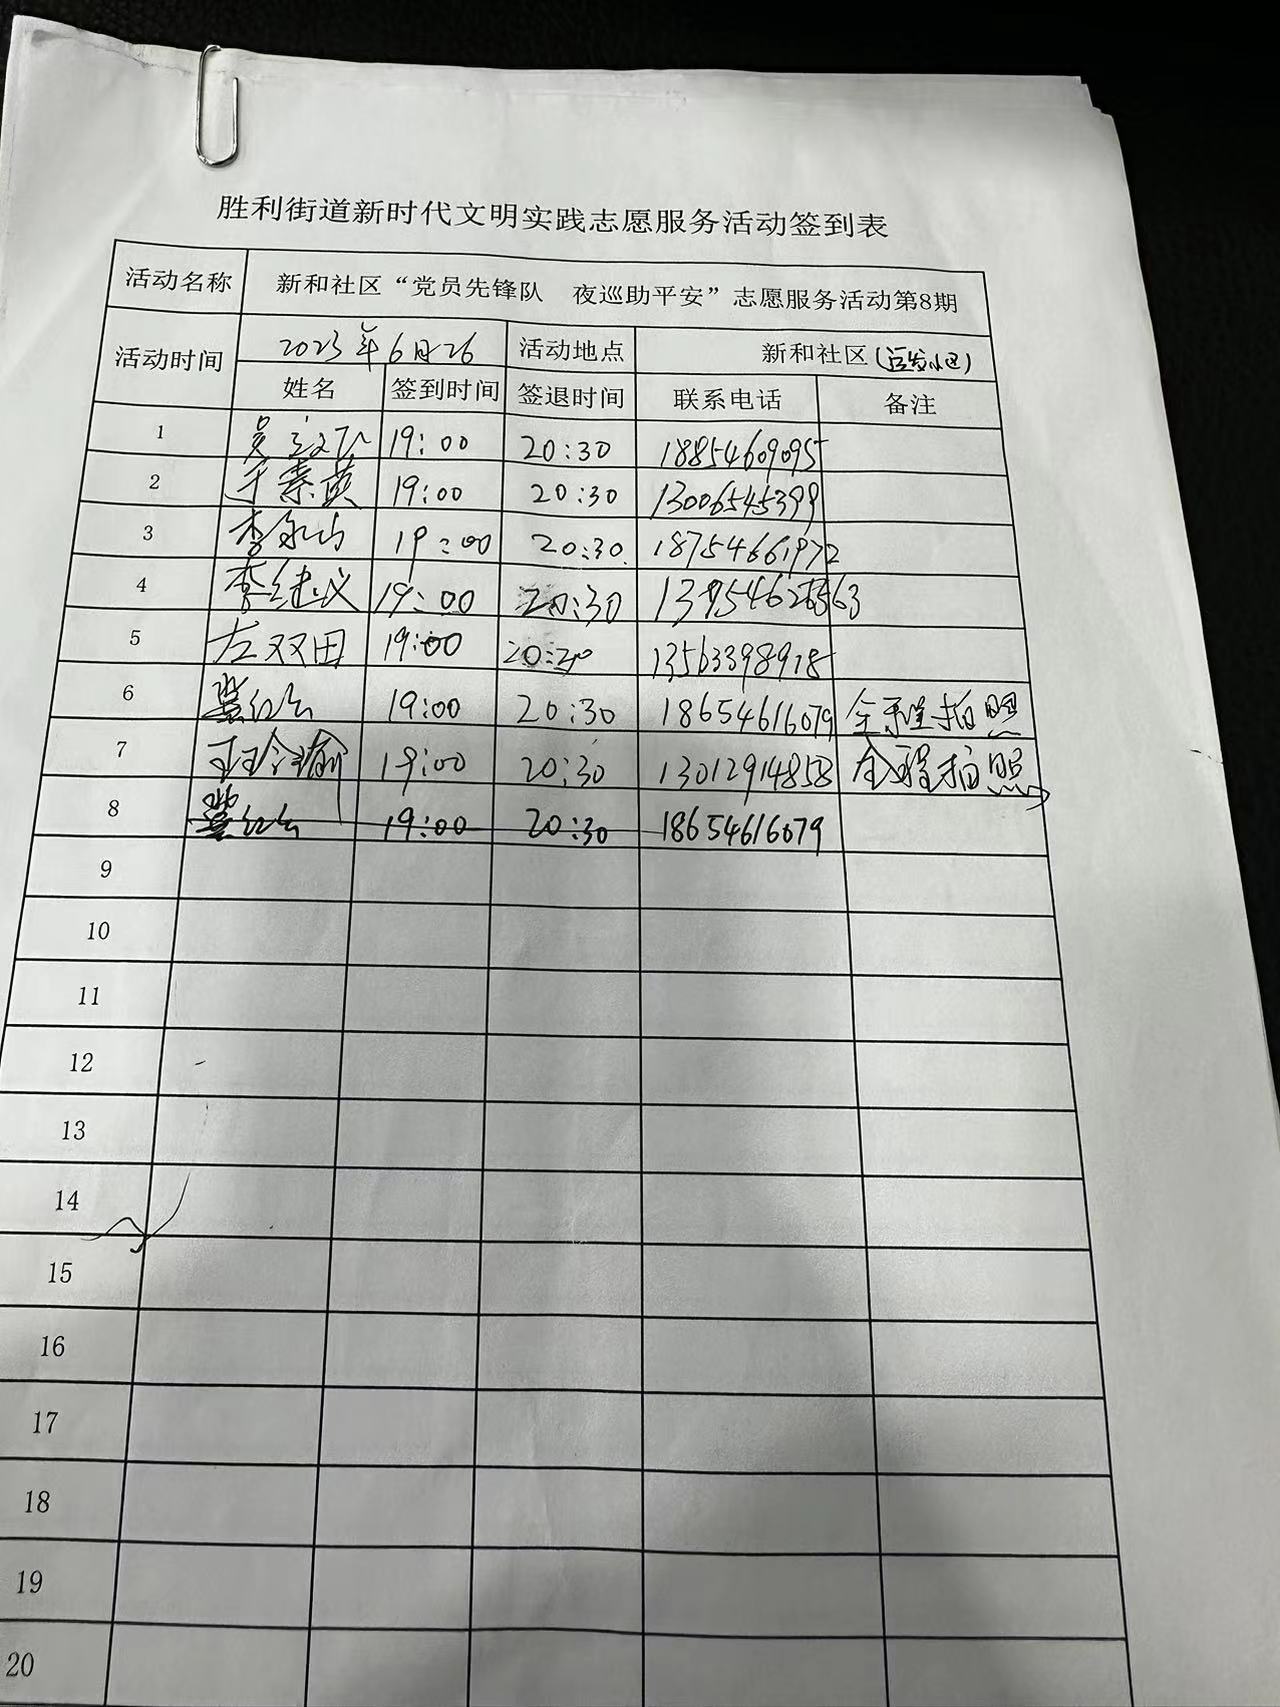 胜利街道新时代文明实践志愿服务活动签到表
活动名称 新和社区“党员先锋队 夜巡助平安”志愿服务活动第8期
活动时间 2023年6月26 活动地点 新和社区(运发小区)
姓名 签到时间 签退时间 联系电话 备注
1 19:00 20:30 18854609095
2 于素英 19:00 20:30 13006545399
3 李永山 19:00 20:30 18754661972
4 李建议 19:00 20:30
5 左双田 19:00 20:30 13563398918
6 冀红云 19:00 20:30 18654616079 全程拍照
7 王玲瑜 19:00 20:30 13012914858 全程拍照
8 冀红云 19:00 20:30 18654616079
9
10
11
12
13
14
15
16
17
18
19
20